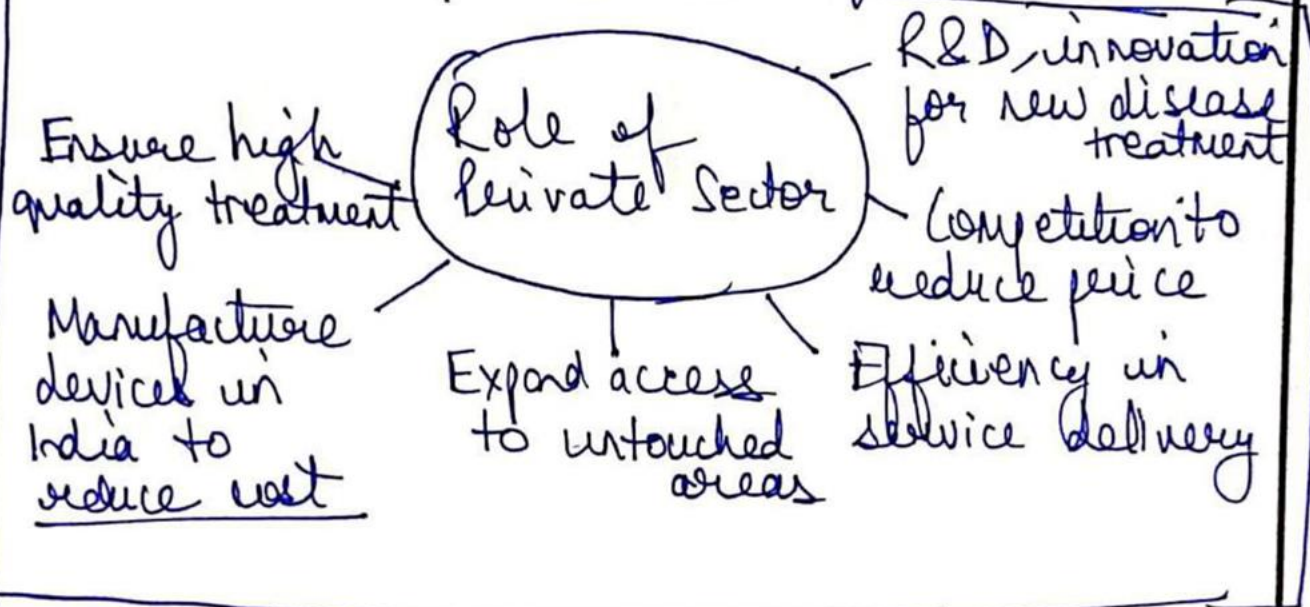 Role of
Private Sector
R&D, innovation
for new disease
treatment
Competition to
reduce price
Efficiency in
service delivery
Expand access
to untouched
areas
Manufacture
devices in
India to
reduce cost
Ensure high
quality treatment